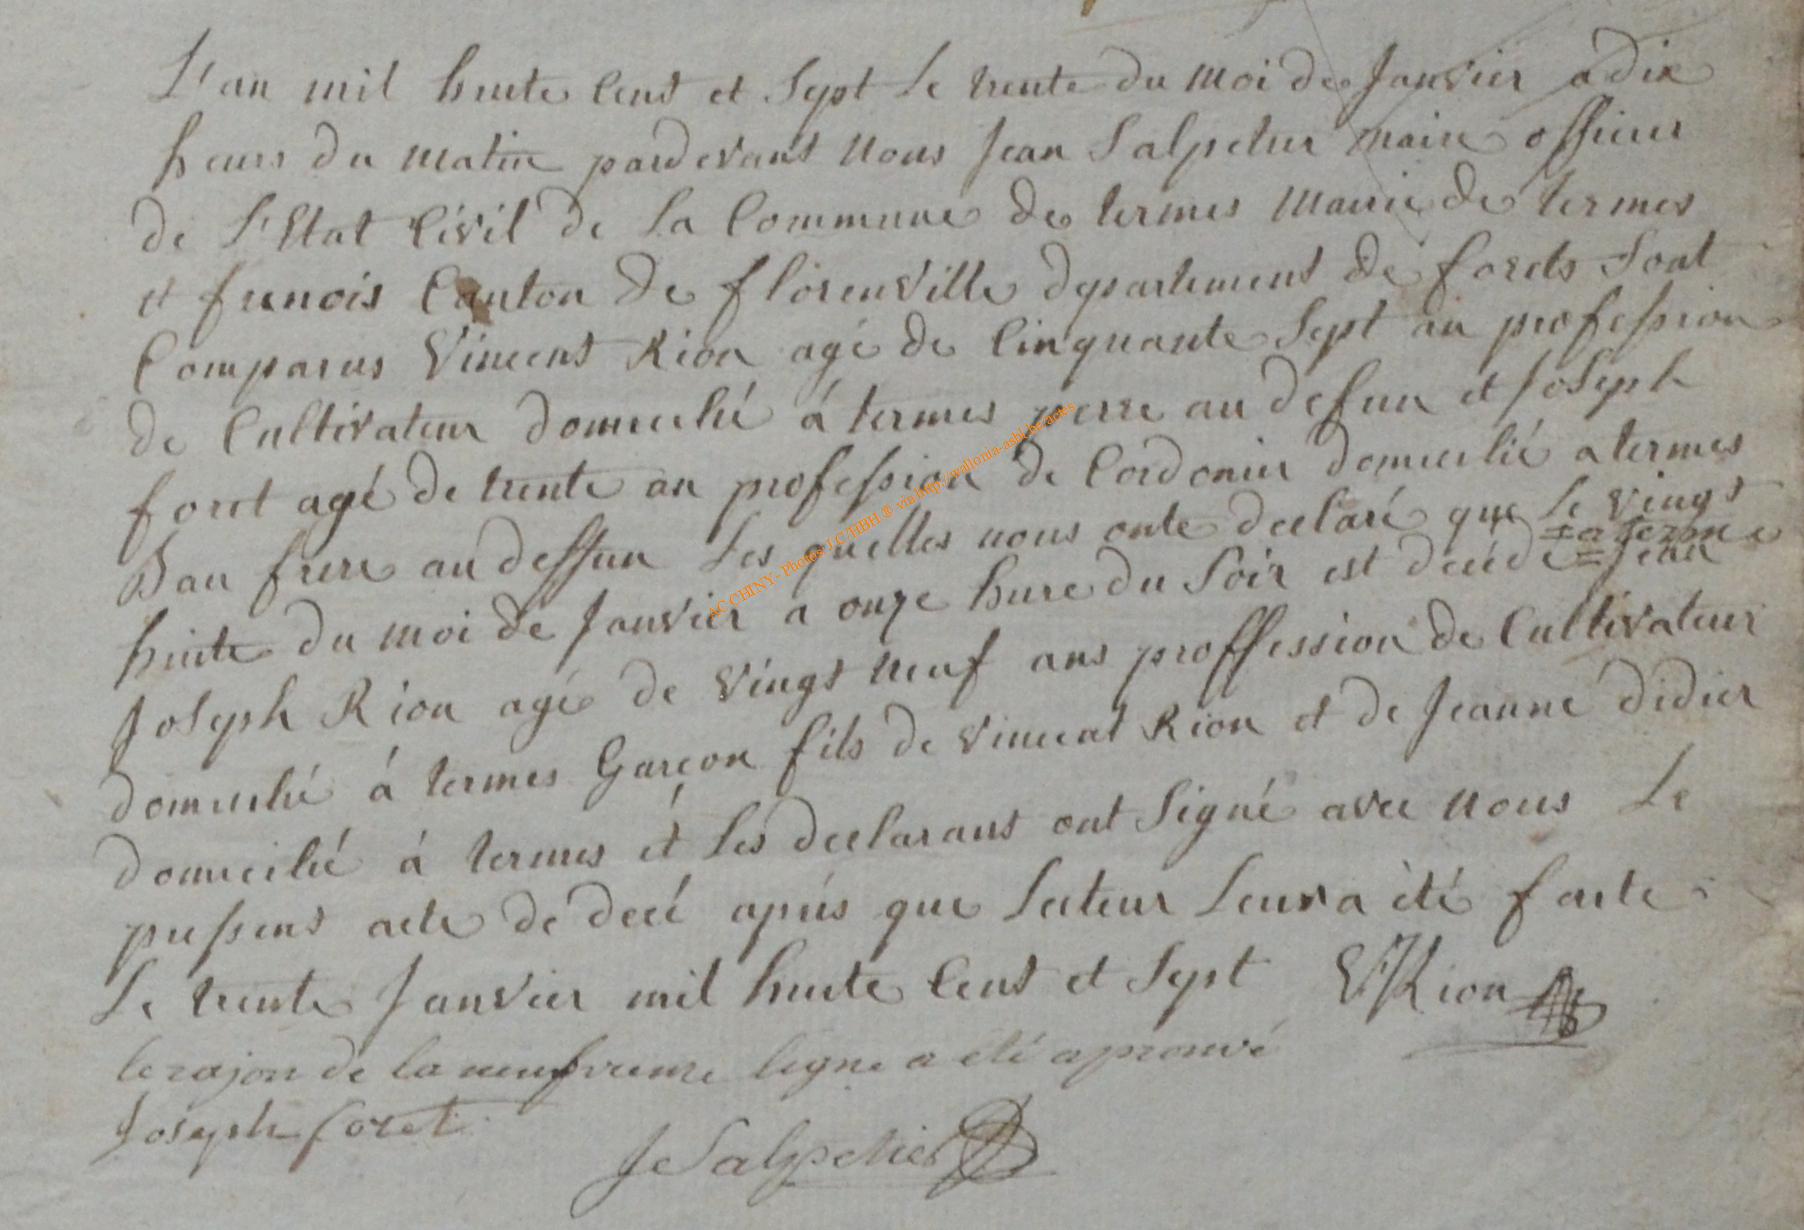 L'an mil huite Cent et Sept Le trente du moi de Janvier a dix
heurs du matin pardevant nous Jean Salpetier maire officier
de L'Etat Civil de La Commune de termes Mairie de termes
et frenois Canton de florenville departement de forets Sont
Comparus Vincent Rion agé de Cinquante Sept an profession
de Cultivateur domicilié á termes perre au defun et Joseph
foret agé de trente an profession de Cordonier domicilié a termes
Bau frere au deffun Les quelles nous onte declaré que Le vingt
= a terme =
huite du moi de Janvier a onze hure du Soir est decéde = Jean
Joseph Rion agé de vingt neuf ans proffession de Cultivateur
domicilié á termes Garçon fils de vincent Rion et de Jeanne didier
domicilié á termes et Les declarant ont Signé avec nous Le
pressent acte de decé aprés que Lecteur Leur a été faite
Le trente Janvier mil huite Cent et Sept V Rion
le rajon de la neufvieme ligne a été aprouvé
Joseph foret
Je Salpetier
AC CHINY- Photos J.C. HBH.® via http://wallonia-asbl.be/actes